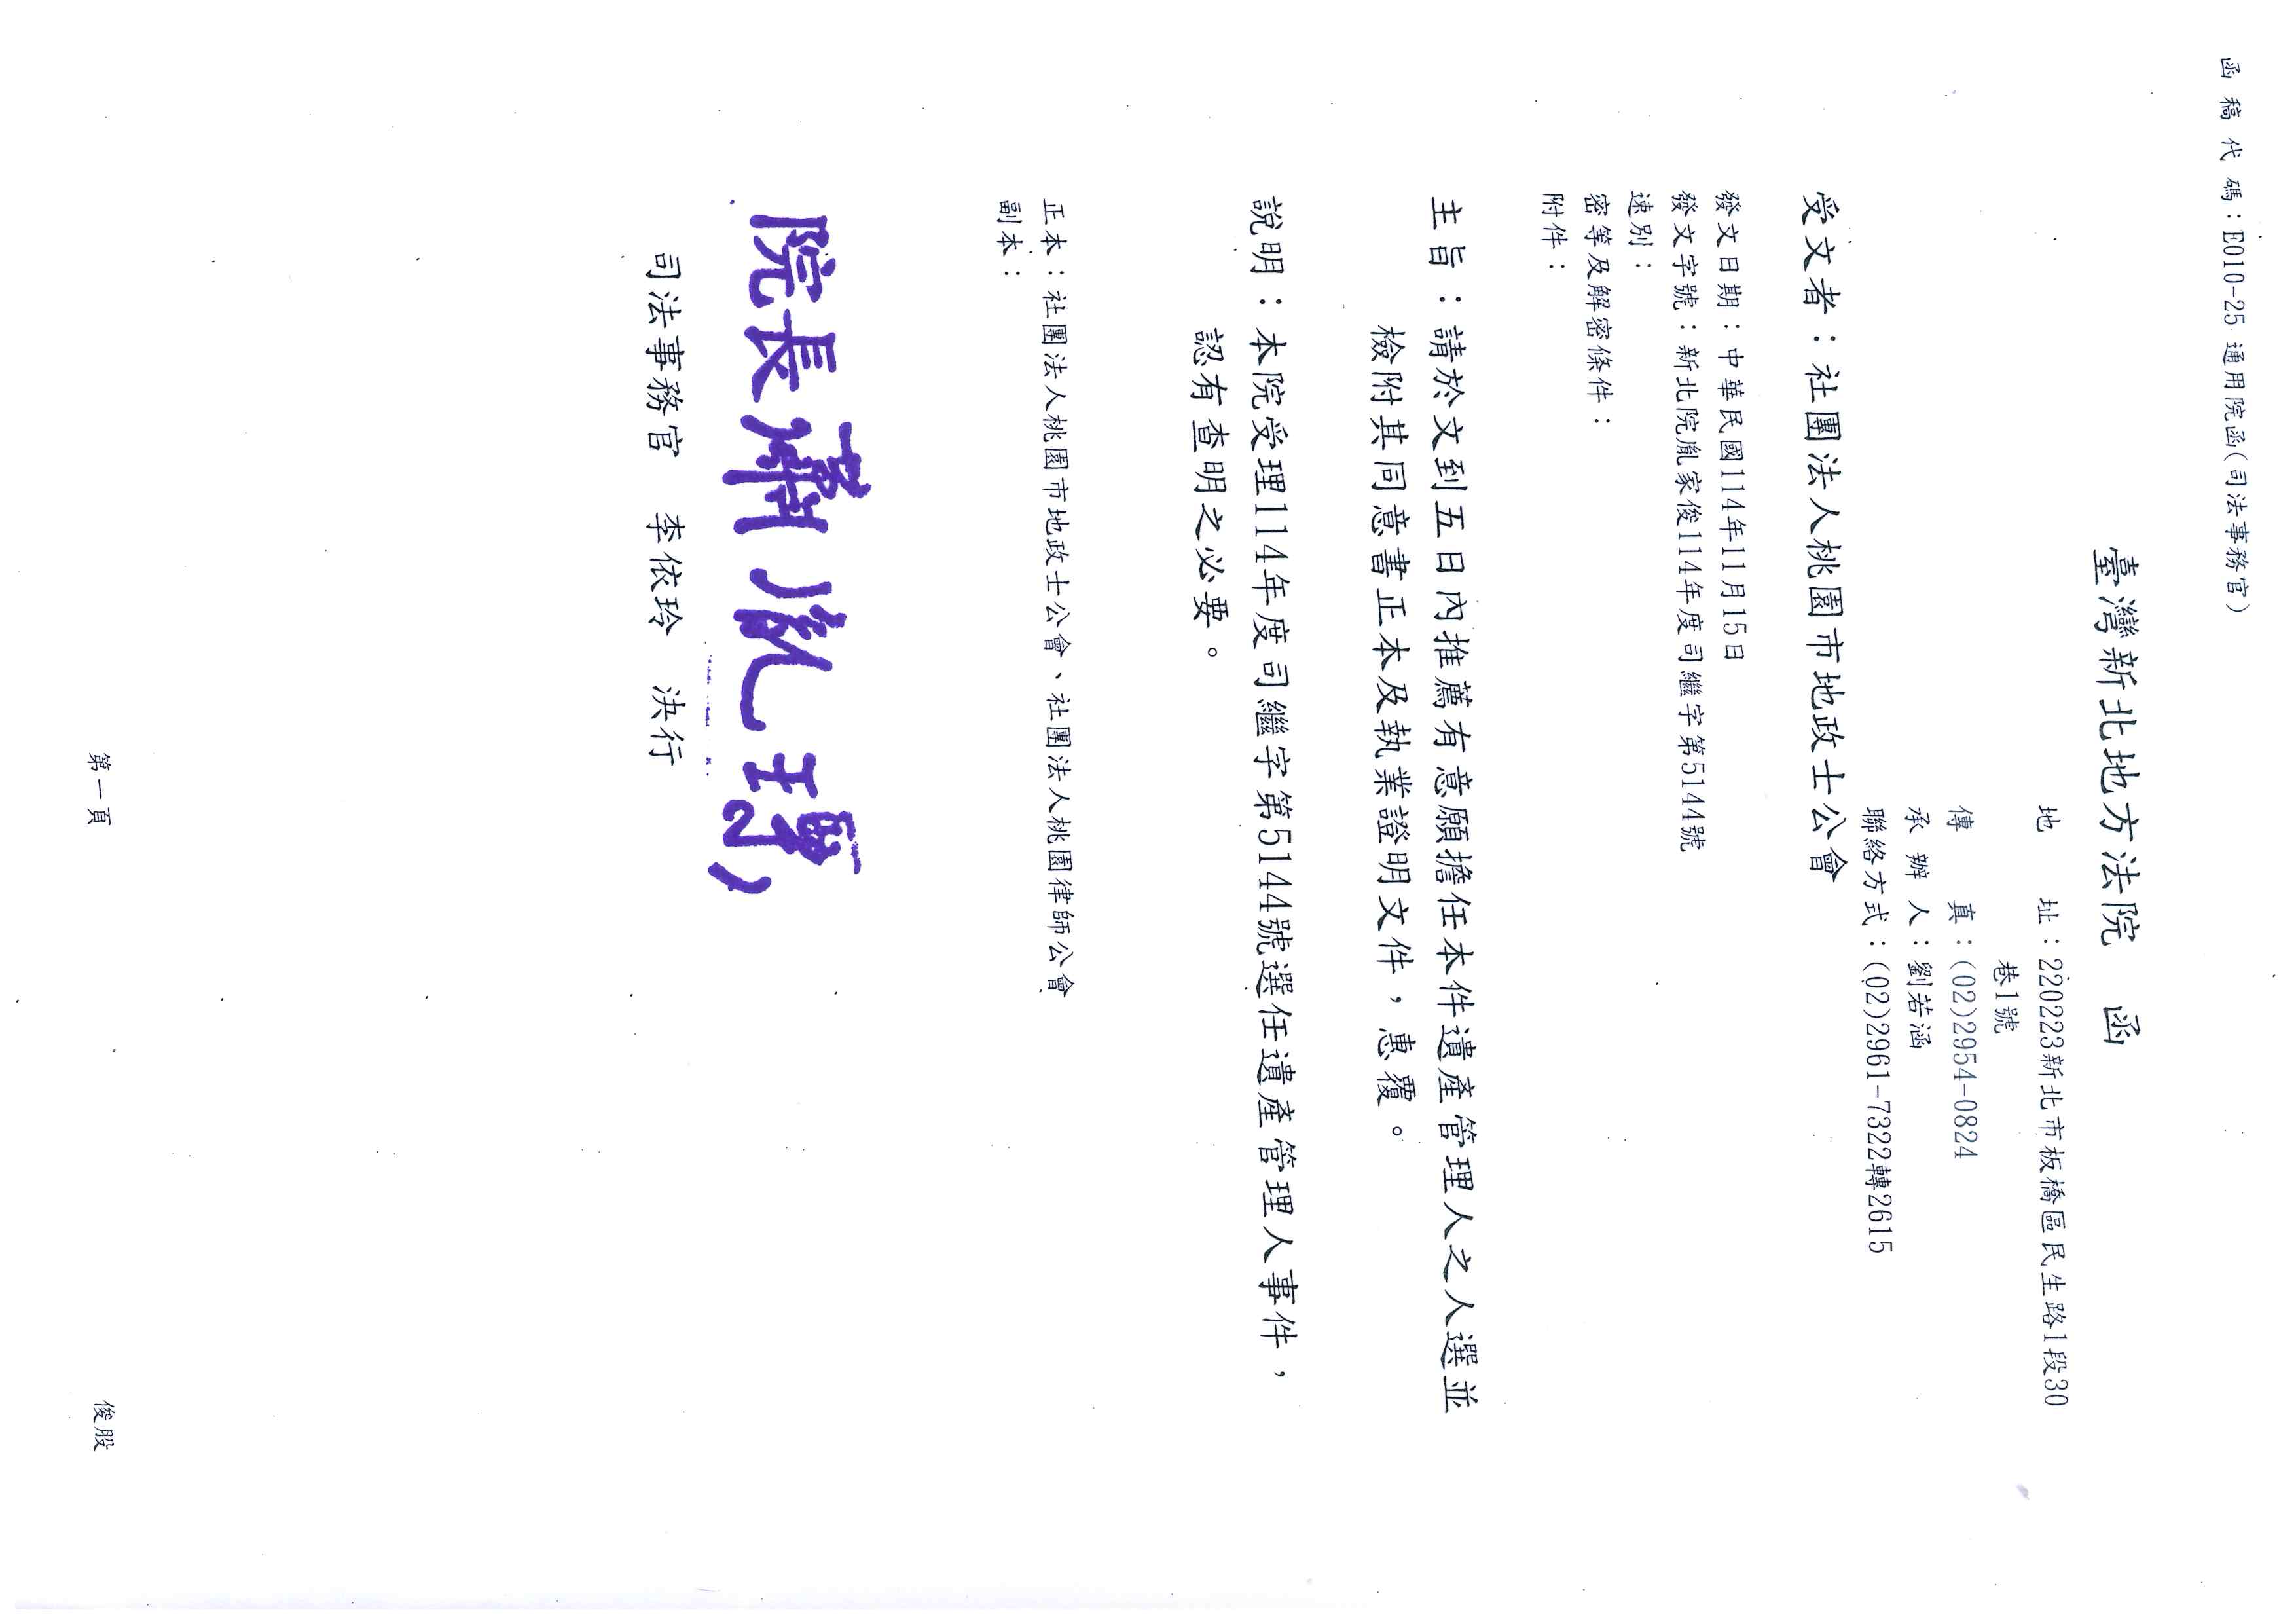 函稿代碼：E010-25 通用院函(司法事務官)
臺灣新北地方法院　函
地　　址：220223新北市板橋區民生路1段30
巷1號
傳　　真：(02)2954-0824
承 辦 人：劉若涵
聯絡方式：(02)2961-7322轉2615
受文者：社團法人桃園市地政士公會
發文日期：中華民國114年11月15日
發文字號：新北院胤家俊114年度司繼字第5144號
速別：
密等及解密條件：
附件：
主旨：請於文到五日內推薦有意願擔任本件遺產管理人之人選並
檢附其同意書正本及執業證明文件，惠覆。
說明：本院受理114年度司繼字第5144號選任遺產管理人事件，
認有查明之必要。
正本：社團法人桃園市地政士公會、社團法人桃園律師公會
副本：
院長
司法事務官　李依玲　決行
第一頁
俊股